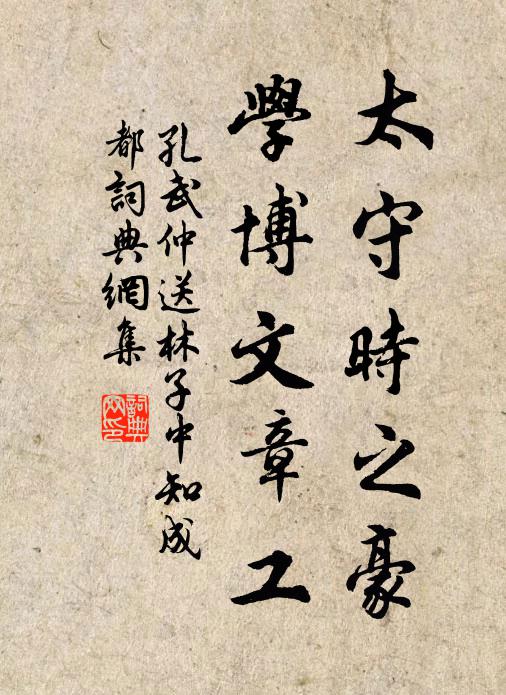 太守時之豪
學博文章工
孔武仲送林子中知成
都詞典網集
詞典
网印